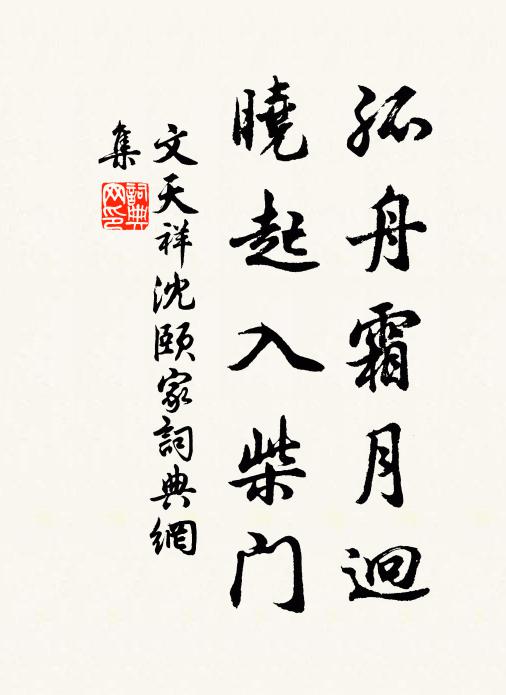 孤舟霜月迥
曉起入柴门
文天祥沈颐家詞典網
集
詞典网印